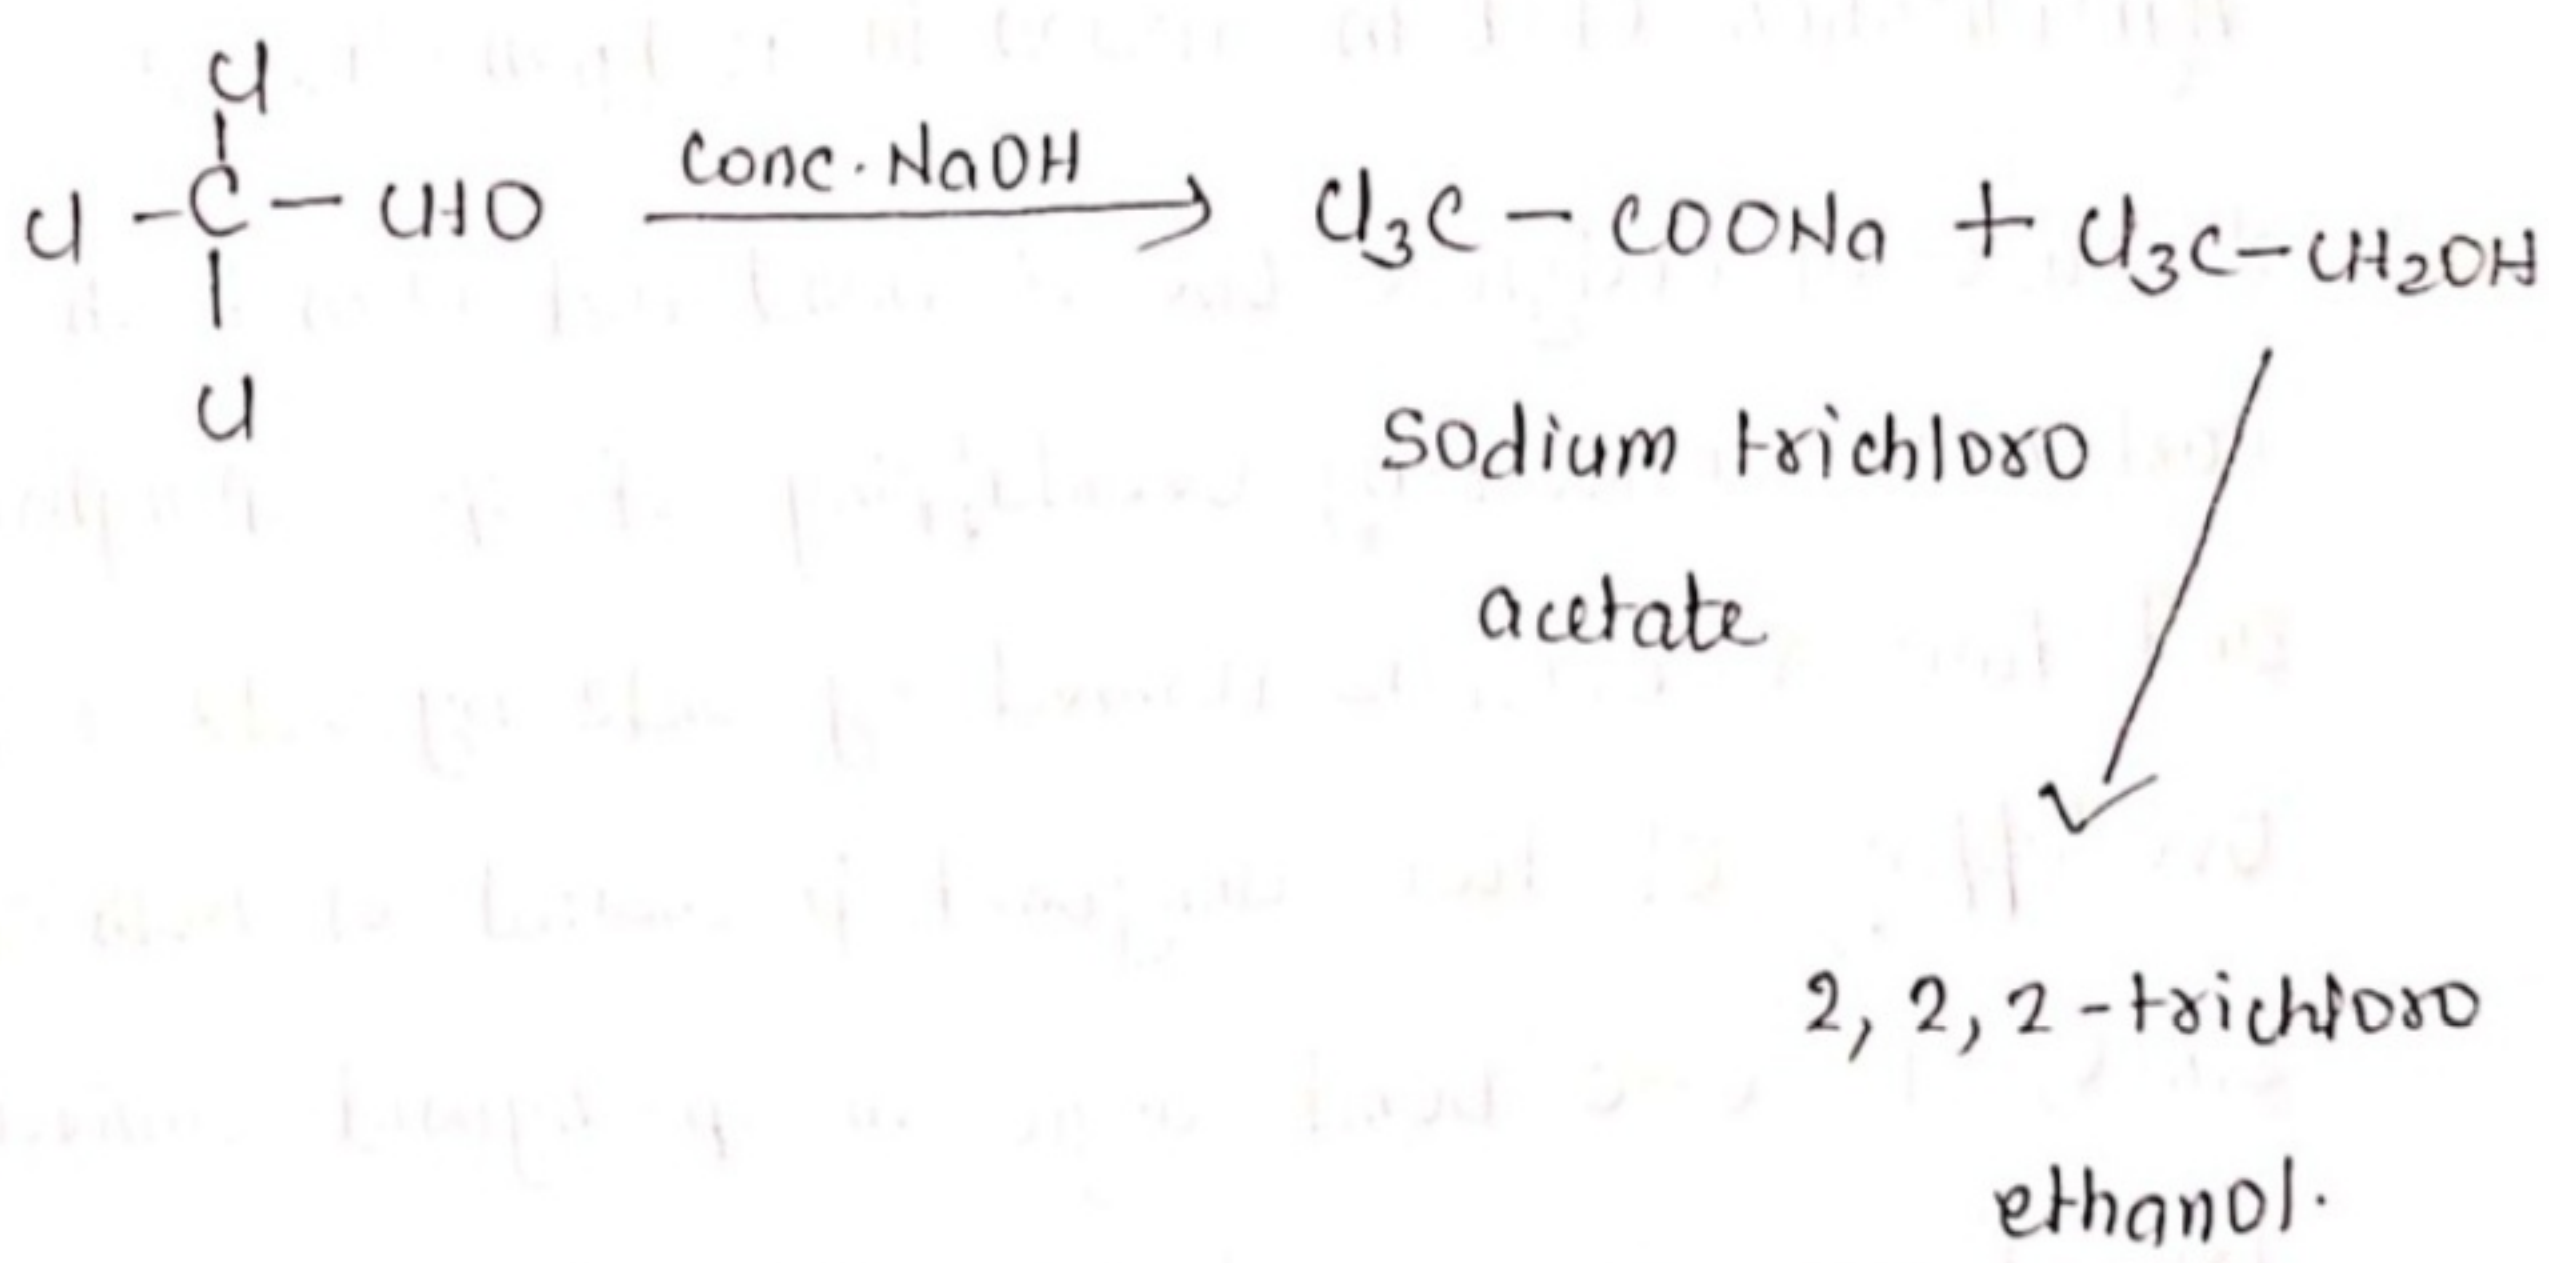 Cl
Cl - C - CHO
Cl
Conc. NaOH
Cl3C - COONa + Cl3C - CH2OH
Sodium trichloro
acetate
2, 2, 2 - trichloro
ethanol.